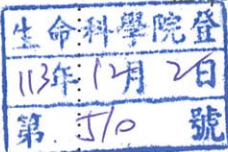 生命科學院登
113年12月26日
第510號